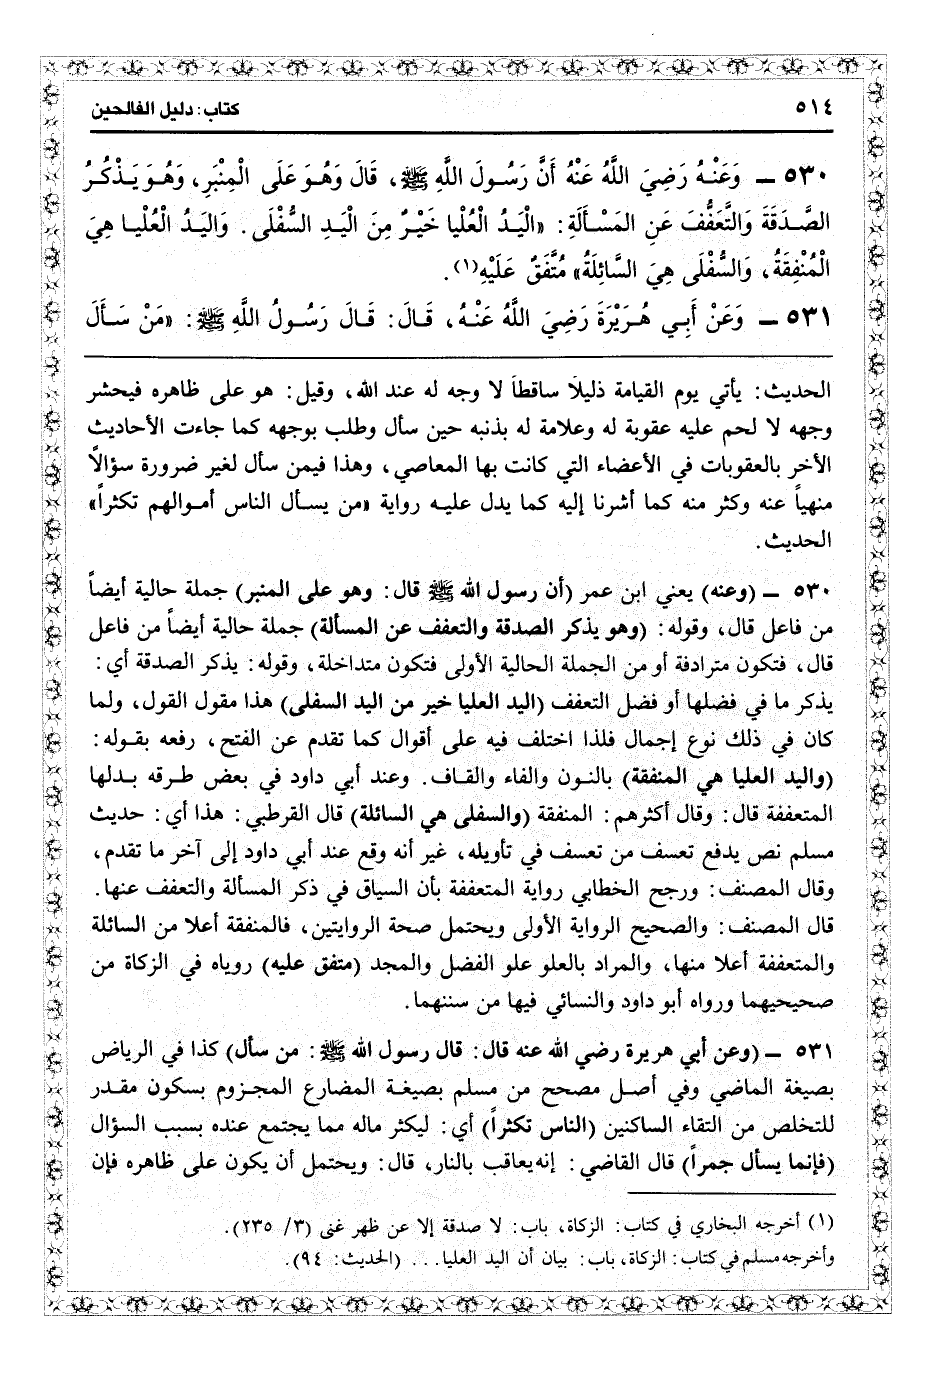 ٥١٤
كتاب: دليل الفالحين
٥٣٠ ـ وَعَنْهُ رَضِيَ اللَّهُ عَنْهُ أَنَّ رَسُولَ اللَّهِ ﷺ، قَالَ وَهُوَ عَلَى الْمِنْبَرِ، وَهُوَ يَذْكُرُ
الصَّدَقَةَ وَالتَّعَفُّفَ عَنِ المَسْأَلَةِ: «الْيَدُ الْعُلْيا خَيْرٌ مِنَ الْيَدِ السُّفْلَى. وَالْيَدُ الْعُلْيا هِيَ
الْمُنْفِقَةُ، وَالسُّفْلَى هِيَ السَّائِلَةُ» مُتَّفَقٌ عَلَيْهِ(١).
٥٣١ ـ وَعَنْ أَبِي هُرَيْرَةَ رَضِيَ اللَّهُ عَنْهُ، قَالَ: قَالَ رَسُولُ اللَّهِ ﷺ: «مَنْ سَأَلَ
الحديث: يأتي يوم القيامة ذليلًا ساقطاً لا وجه له عند الله، وقيل: هو على ظاهره فيحشر
وجهه لا لحم عليه عقوبة له وعلامة له بذنبه حين سأل وطلب بوجهه كما جاءت الأحاديث
الأخر بالعقوبات في الأعضاء التي كانت بها المعاصي، وهذا فيمن سأل لغير ضرورة سؤالاً
منهياً عنه وكثر منه كما أشرنا إليه كما يدل عليه رواية «من يسأل الناس أموالهم تكثراً»
الحديث.
٥٣٠ ـ (وعنه) يعني ابن عمر (أن رسول الله ﷺ قال: وهو على المنبر) جملة حالية أيضاً
من فاعل قال، وقوله: (وهو يذكر الصدقة والتعفف عن المسألة) جملة حالية أيضاً من فاعل
قال، فتكون مترادفة أو من الجملة الحالية الأولى فتكون متداخلة، وقوله: يذكر الصدقة أي:
يذكر ما في فضلها أو فضل التعفف (اليد العليا خير من اليد السفلى) هذا مقول القول، ولما
كان في ذلك نوع إجمال فلذا اختلف فيه على أقوال كما تقدم عن الفتح، رفعه بقوله:
(واليد العليا هي المنفقة) بالنون والفاء والقاف. وعند أبي داود في بعض طرقه بدلها
المتعففة قال: وقال أكثرهم: المنفقة (والسفلى هي السائلة) قال القرطبي: هذا أي: حديث
مسلم نص يدفع تعسف من تعسف في تأويله، غير أنه وقع عند أبي داود إلى آخر ما تقدم،
وقال المصنف: ورجح الخطابي رواية المتعففة بأن السياق في ذكر المسألة والتعفف عنها.
قال المصنف: والصحيح الرواية الأولى ويحتمل صحة الروايتين، فالمنفقة أعلا من السائلة
والمتعففة أعلا منها، والمراد بالعلو علو الفضل والمجد (متفق عليه) روياه في الزكاة من
صحيحيهما ورواه أبو داود والنسائي فيها من سننهما.
٥٣١ ـ (وعن أبي هريرة رضي الله عنه قال: قال رسول الله ﷺ: من سأل) كذا في الرياض
بصيغة الماضي وفي أصل مصحح من مسلم بصيغة المضارع المجزوم بسكون مقدر
للتخلص من التقاء الساكنين (الناس تكثراً) أي: ليكثر ماله مما يجتمع عنده بسبب السؤال
(فإنما يسأل جمراً) قال القاضي: إنه يعاقب بالنار، قال: ويحتمل أن يكون على ظاهره فإن
(١) أخرجه البخاري في كتاب: الزكاة، باب: لا صدقة إلا عن ظهر غنى (٣/ ٢٣٥).
وأخرجه مسلم في كتاب: الزكاة، باب: بيان أن اليد العليا... (الحديث: ٩٤).